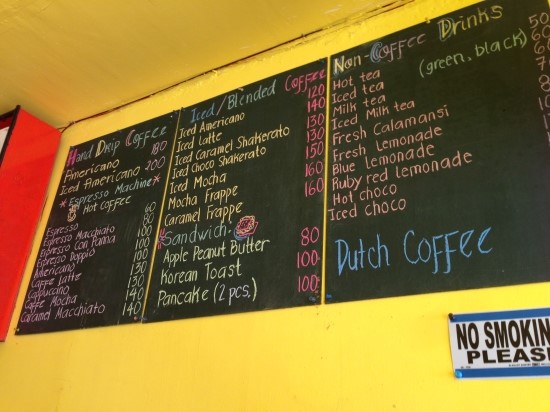 Hand Drip Coffee
Americano 180
Iced Americano 200
*Espresso Machine*
Hot Coffee
Espresso 60
Espresso Macchiato 80
Espresso Con Panna
Espresso Doppio
Americano 100
Caffe Latte 130
Cappucano 130
Caffe Mocha 140
Caramel Macchiato 140
Iced/Blended Coffee
Iced Americano 120
Iced Latte 140
Iced Caramel Shakerato 130
Iced Choco Shakerato 130
Iced Mocha 150
Mocha Frappe 160
Caramel Frappe 160
Sandwich
Apple Peanut Butter 80
Korean Toast 100
Pancake (2 pcs.) 100
Non-Coffee Drinks
Hot tea (green, black) 50
Iced tea
Milk tea
Iced Milk tea
Fresh Calamansi
Fresh Lemonade
Blue Lemonade
Ruby red lemonade
Hot choco
Iced choco
Dutch Coffee
NO SMOKIN
PLEASE